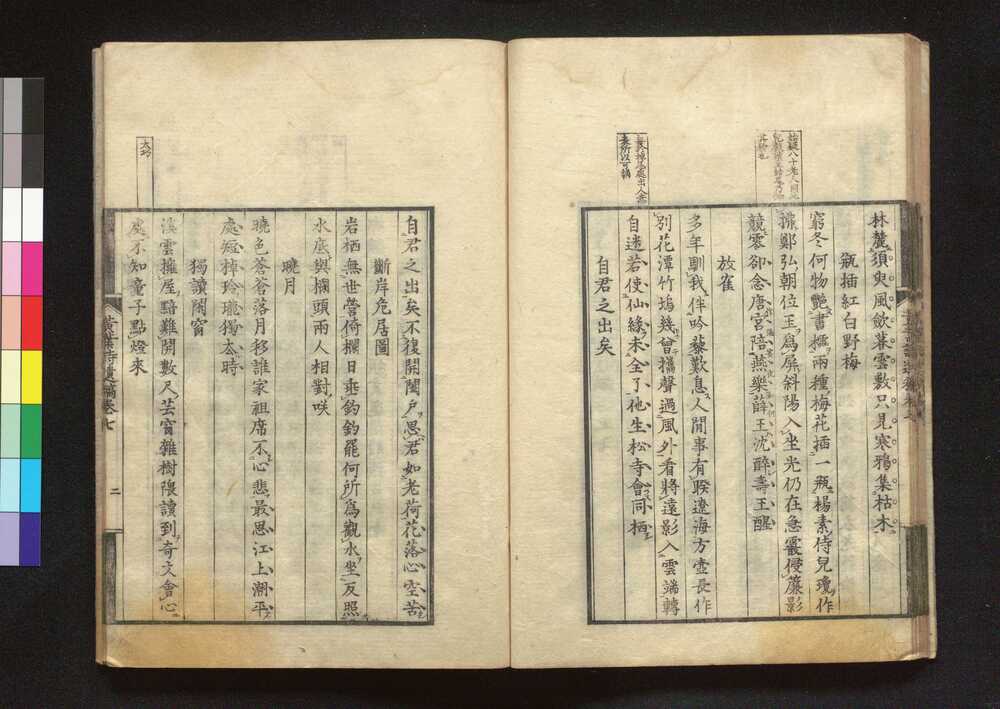 林麓須臾風斂暮雲數只見寒鴉集枯木
瓶插紅白野梅
窮冬何物艷書櫺兩種梅花插一瓶楊素侍兒瓊作
拂鄭弘朝位玉為屏斜陽入坐光仍在急霰侵簾影
競零卻念唐宮陪燕樂薛王沈醉壽王醒
放雀
多年馴我伴吟藜歎息人間事有睽遼海方壺長作
別花潭竹塢幾曾攜聲過風外看將遠影入雲端轉
自迷若使仙緣未全了他生松寺會同栖
自君之出矣
自君之出矣不復開閨戶思君如老荷花落心空苦
斷岸危居圖
岩栖無世營倚欄日垂釣釣罷何所為觀水坐反照
水底與欄頭兩人相對咲
曉月
曉色蒼蒼落月移誰家祖席不心悲最思江上潮平
處短棹玲瓏獨去時
獨讀閑窗
溪雲擁屋黯難開數尺芸窗雜樹隈讀到奇文會心
處不知童子點燈來
黃葉夕陽村舍詩遺稿卷七
二